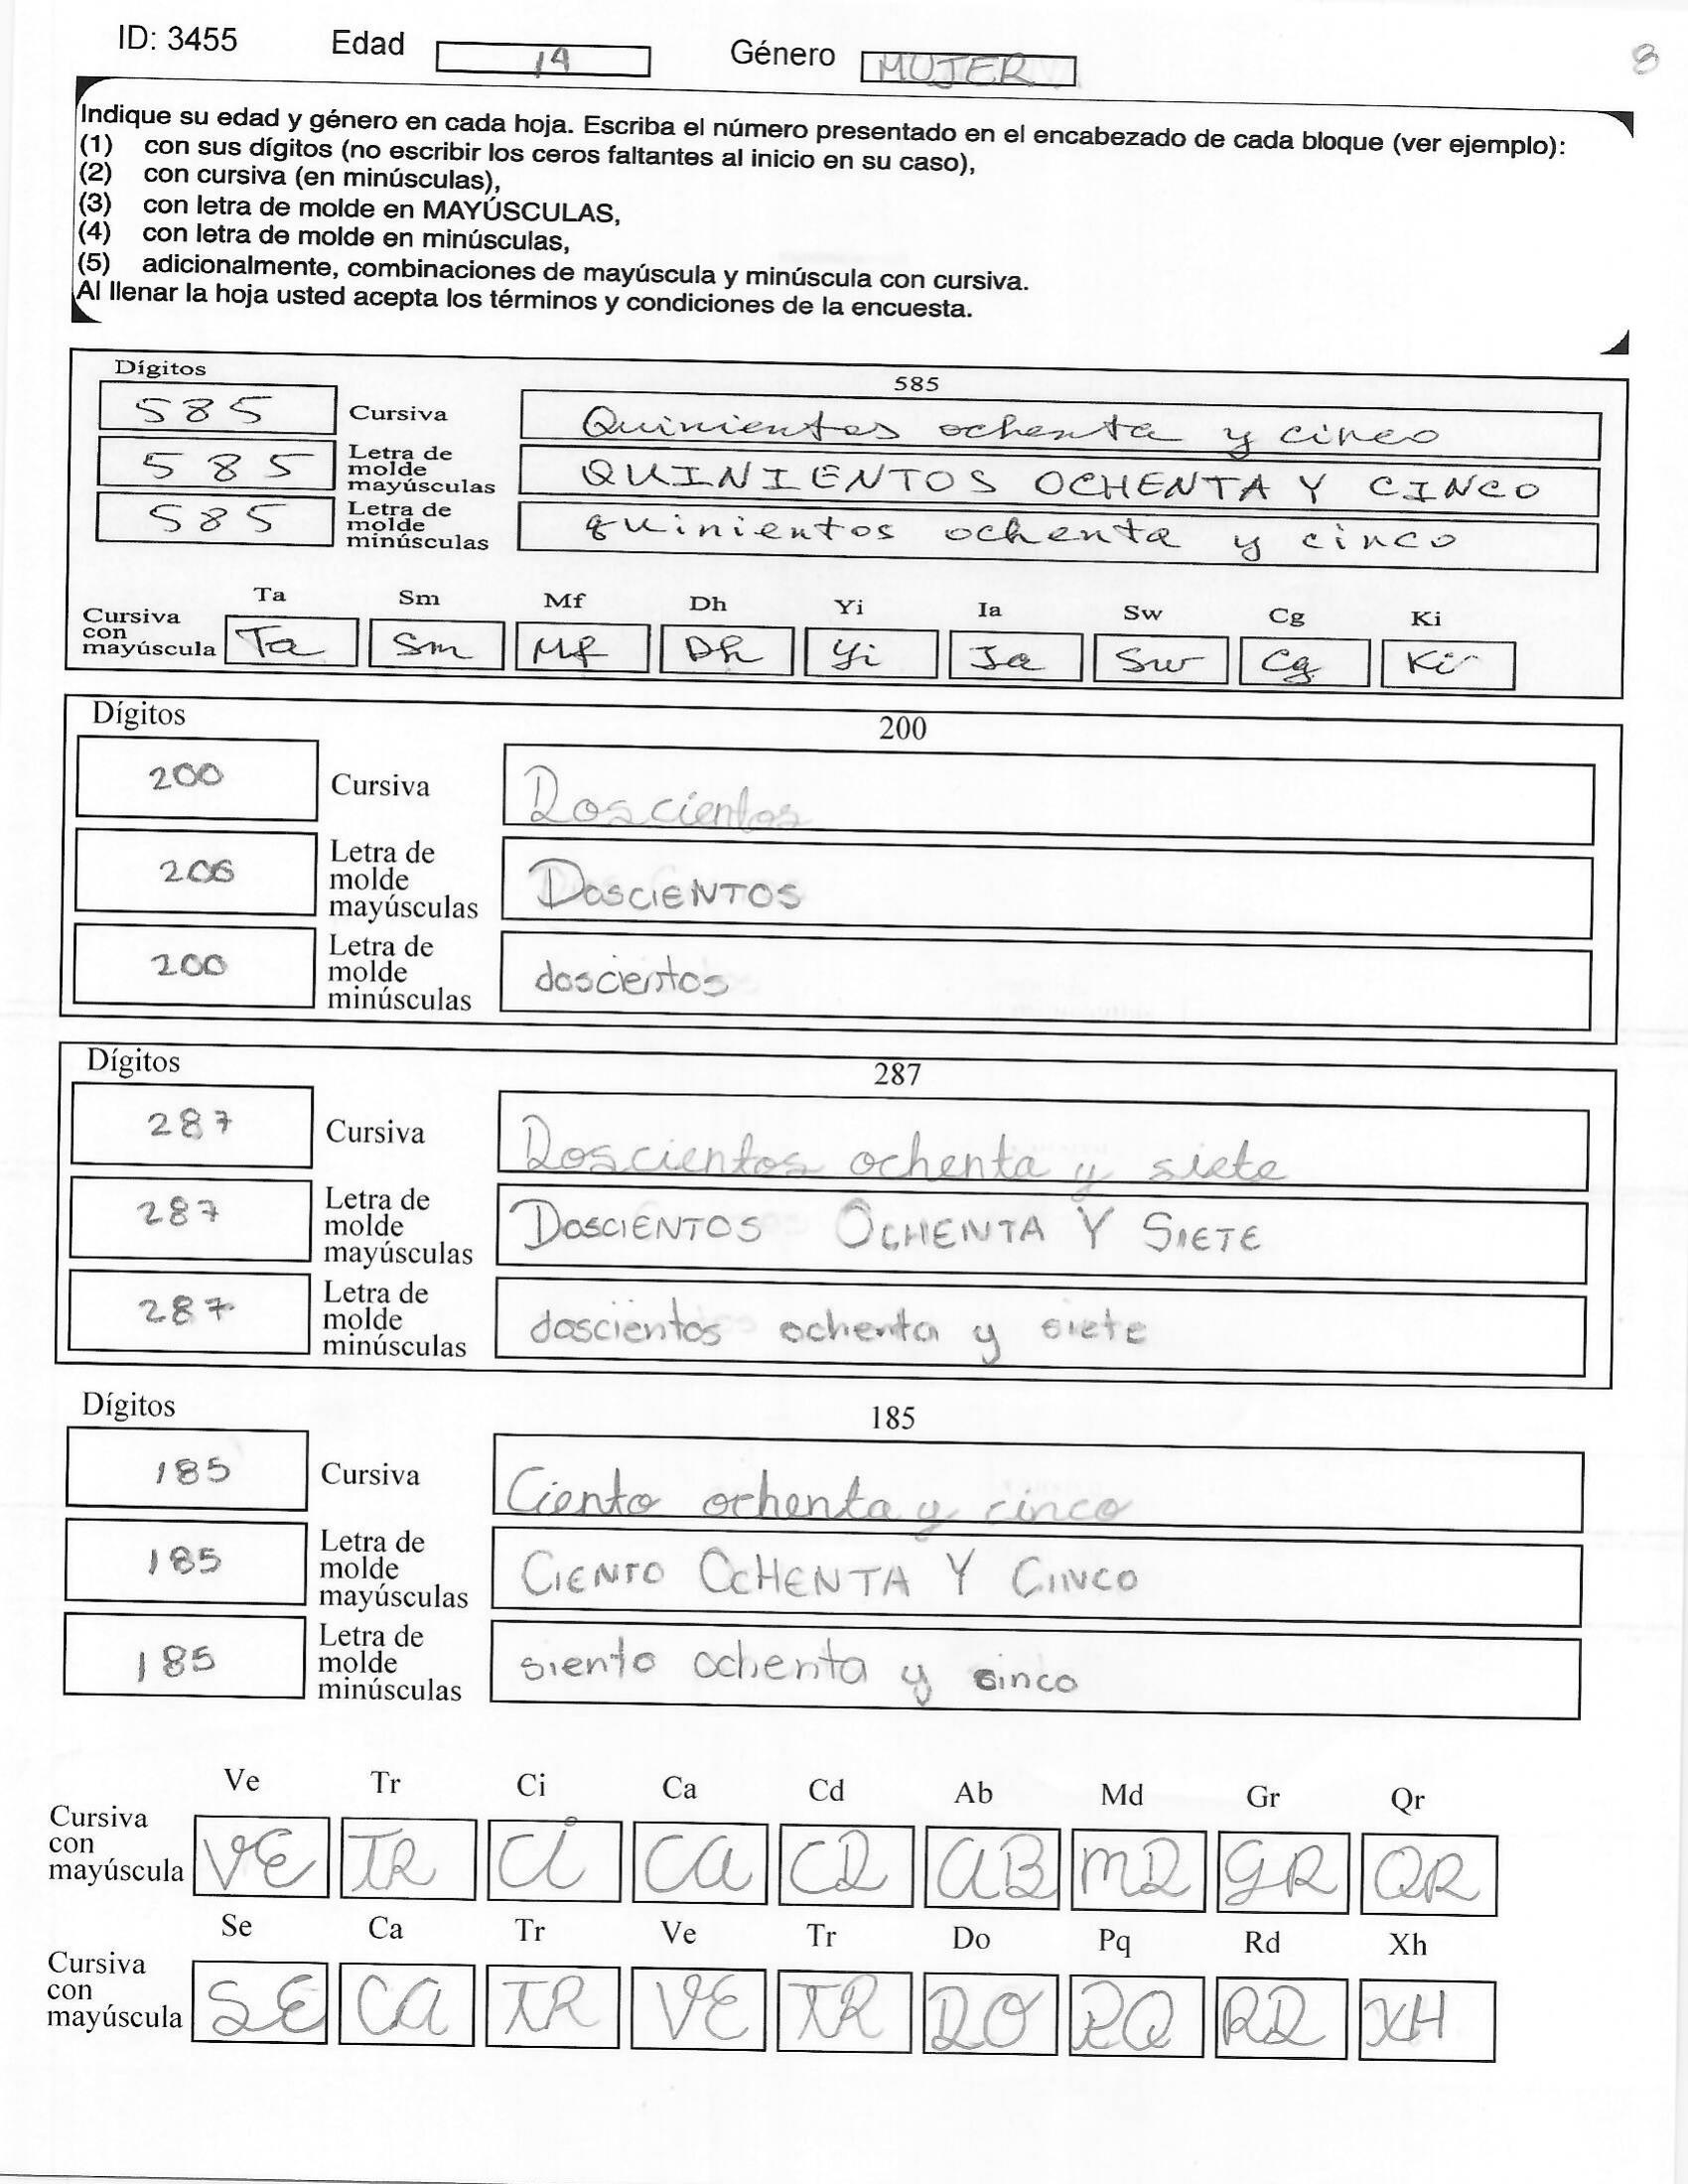 ID: 3455 Edad 19 Género MUJER 8
Indique su edad y género en cada hoja. Escriba el número presentado en el encabezado de cada bloque (ver ejemplo):
(1) con sus dígitos (no escribir los ceros faltantes al inicio en su caso),
(2) con cursiva (en minúsculas),
(3) con letra de molde en MAYÚSCULAS,
(4) con letra de molde en minúsculas,
(5) adicionalmente, combinaciones de mayúscula y minúscula con cursiva.
Al llenar la hoja usted acepta los términos y condiciones de la encuesta.
Dígitos 585
585 Cursiva Quinientos ochenta y cinco
585 Letra de molde mayúsculas QUINIENTOS OCHENTA Y CINCO
585 Letra de molde minúsculas quinientos ochenta y cinco
Ta Sm Mf Dh Yi Ia Sw Cg Ki
Cursiva con mayúscula Ta Sm Mf Dh Yi Ia Sw Cg Ki
Dígitos 200
200 Cursiva Doscientos
200 Letra de molde mayúsculas DOSCIENTOS
200 Letra de molde minúsculas doscientos
Dígitos 287
287 Cursiva Doscientos ochenta y siete
287 Letra de molde mayúsculas DOSCIENTOS OCHENTA Y SIETE
287 Letra de molde minúsculas doscientos ochenta y siete
Dígitos 185
185 Cursiva Ciento ochenta y cinco
185 Letra de molde mayúsculas CIENTO OCHENTA Y CINCO
185 Letra de molde minúsculas siento ochenta y cinco
Ve Tr Ci Ca Cd Ab Md Gr Qr
Cursiva con mayúscula VE TR Ci CA CD AB MD GR QR
Se Ca Tr Ve Tr Do Pq Rd Xh
Cursiva con mayúscula SE CA TR VE TR DO PQ RD XH